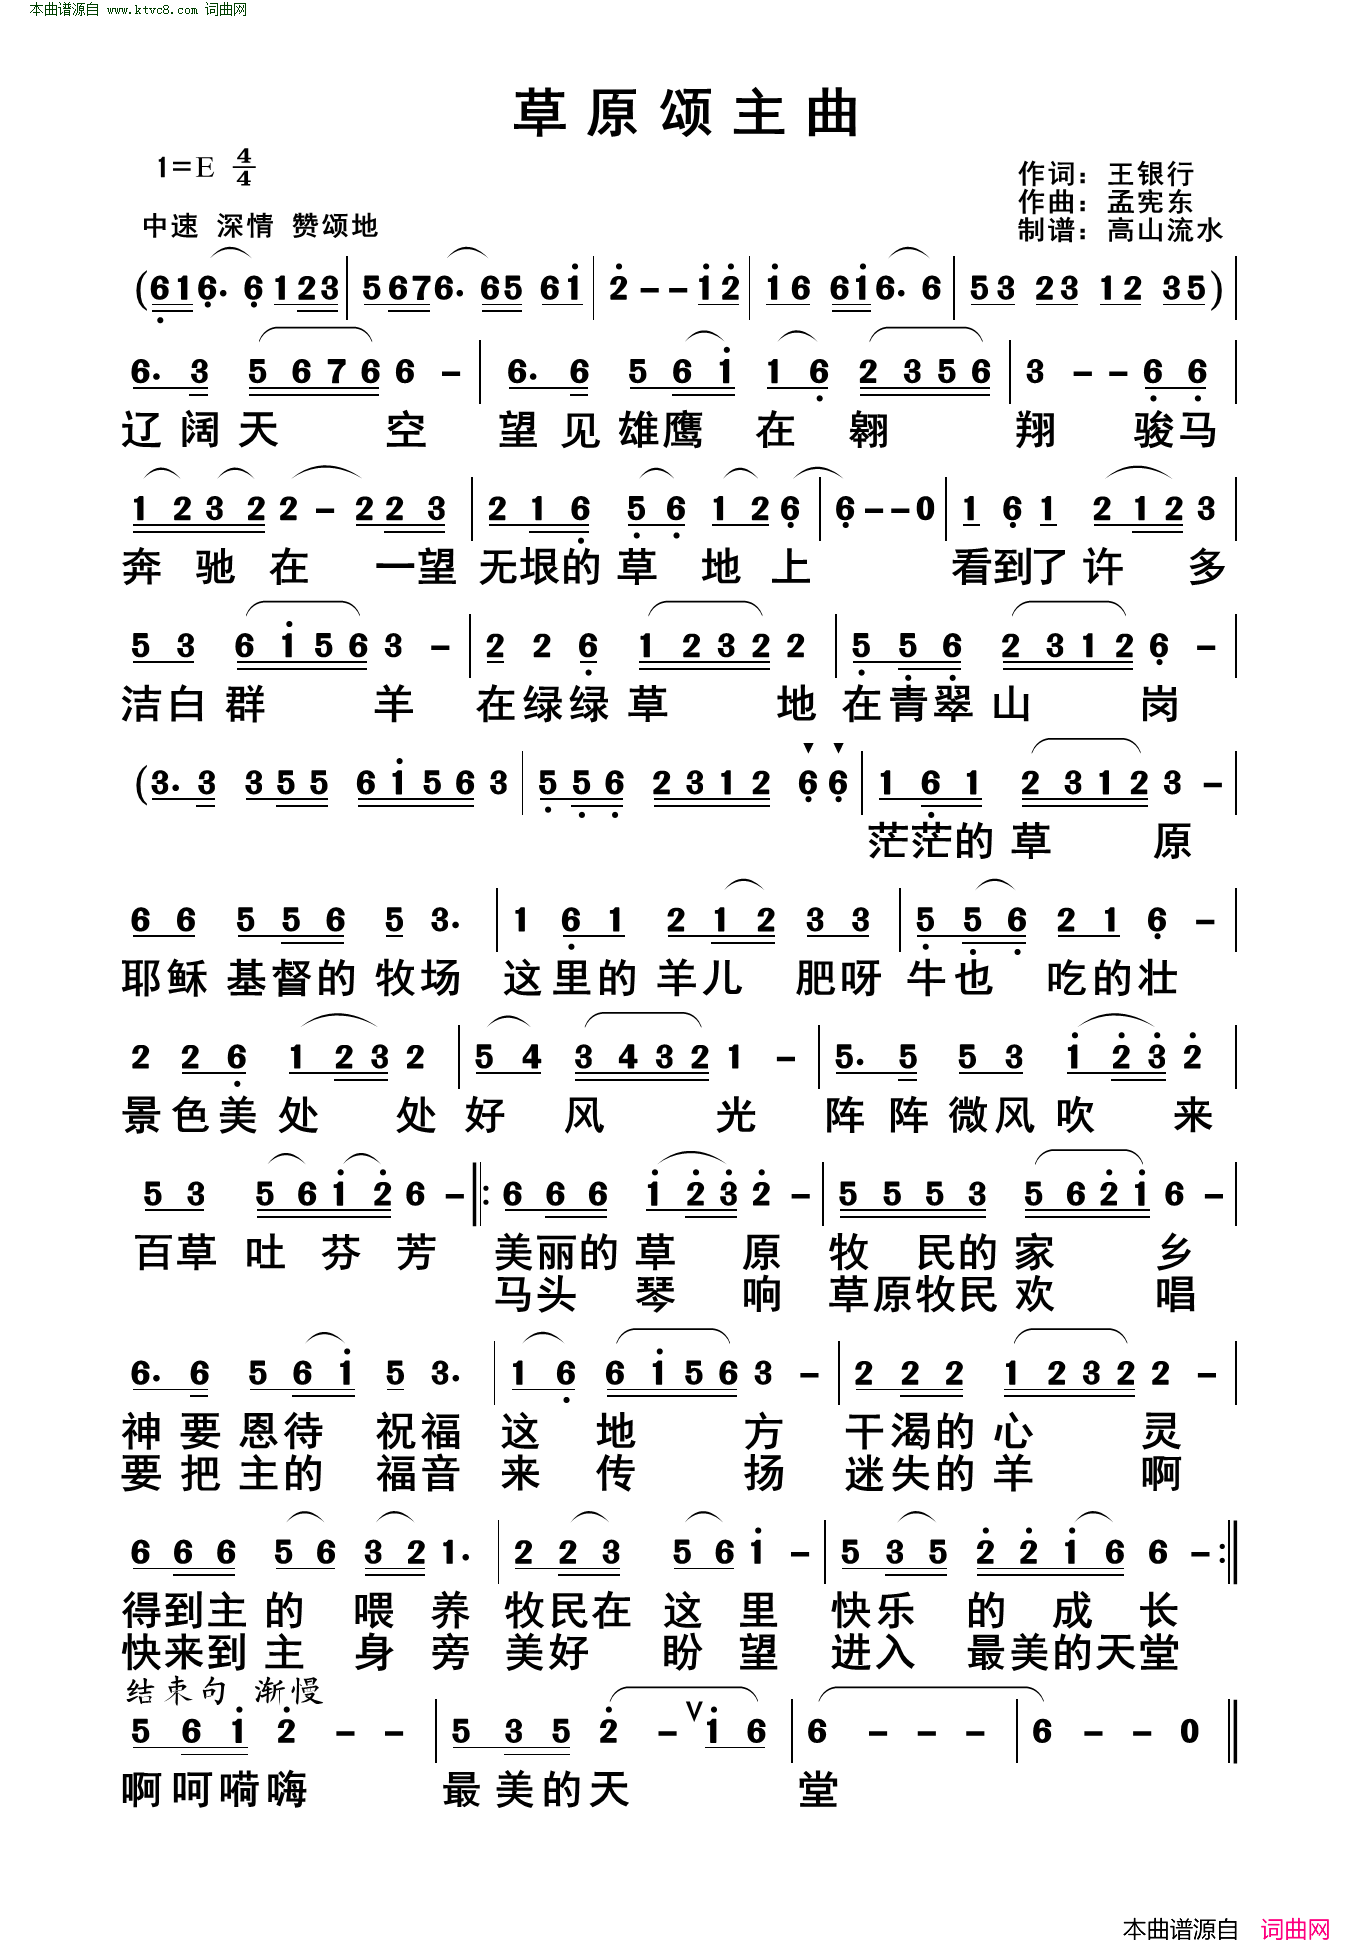 本曲谱源自 www.ktvc8.com 词曲网
草原颂主曲
1=E 4/4
作词：王银行
作曲：孟宪东
制谱：高山流水
中速 深情 赞颂地
(6 1 6. 6 1 2 3 | 5 6 7 6. 6 5 6 1 | 2 - - 1 2 | 1 6 6 1 6. 6 | 5 3 2 3 1 2 3 5) |
6. 3 5 6 7 6 6 - | 6. 6 5 6 1 1 6 2 3 5 6 | 3 - - 6 6 |
辽阔天空 望见雄鹰在翱翔 骏马
1 2 3 2 2 - 2 2 3 | 2 1 6 5 6 1 2 6 | 6 - - 0 | 1 6 1 2 1 2 3 |
奔驰在一望无垠的草地上 看到了许多
5 3 6 1 5 6 3 - | 2 2 6 1 2 3 2 2 | 5 5 6 2 3 1 2 6 - |
洁白群羊 在绿绿草地 在青翠山岗
(3. 3 3 5 5 6 1 5 6 3 | 5 5 6 2 3 1 2 6 6 | 1 6 1 2 3 1 2 3 - |
茫茫的草原
6 6 5 5 6 5 3. | 1 6 1 2 1 2 3 3 | 5 5 6 2 1 6 - |
耶稣基督的牧场 这里的羊儿肥呀 牛也吃的壮
2 2 6 1 2 3 2 | 5 4 3 4 3 2 1 - | 5. 5 5 3 1 2 3 2 |
景色美处处好风光 阵阵微风吹来
5 3 5 6 1 2 6 - |: 6 6 6 1 2 3 2 - | 5 5 5 3 5 6 2 1 6 - |
百草吐芬芳 美丽的草原 牧民的家乡
马头琴响 草原牧民欢唱
6. 6 5 6 1 5 3. | 1 6 6 1 5 6 3 - | 2 2 2 1 2 3 2 2 - |
神要恩待祝福这地方 干渴的心灵
要把主的福音来传扬 迷失的羊啊
6 6 6 5 6 3 2 1. | 2 2 3 5 6 1 - | 5 3 5 2 2 1 6 6 - :|
得到主的喂养 牧民在这里 快乐的成长
快来到主身旁 美好盼望 进入最美的天堂
结束句 渐慢
5 6 1 2 - - | 5 3 5 2 - V 1 6 | 6 - - - | 6 - - 0 ‖
啊呵嗬嗨 最美的天堂
本曲谱源自 词曲网